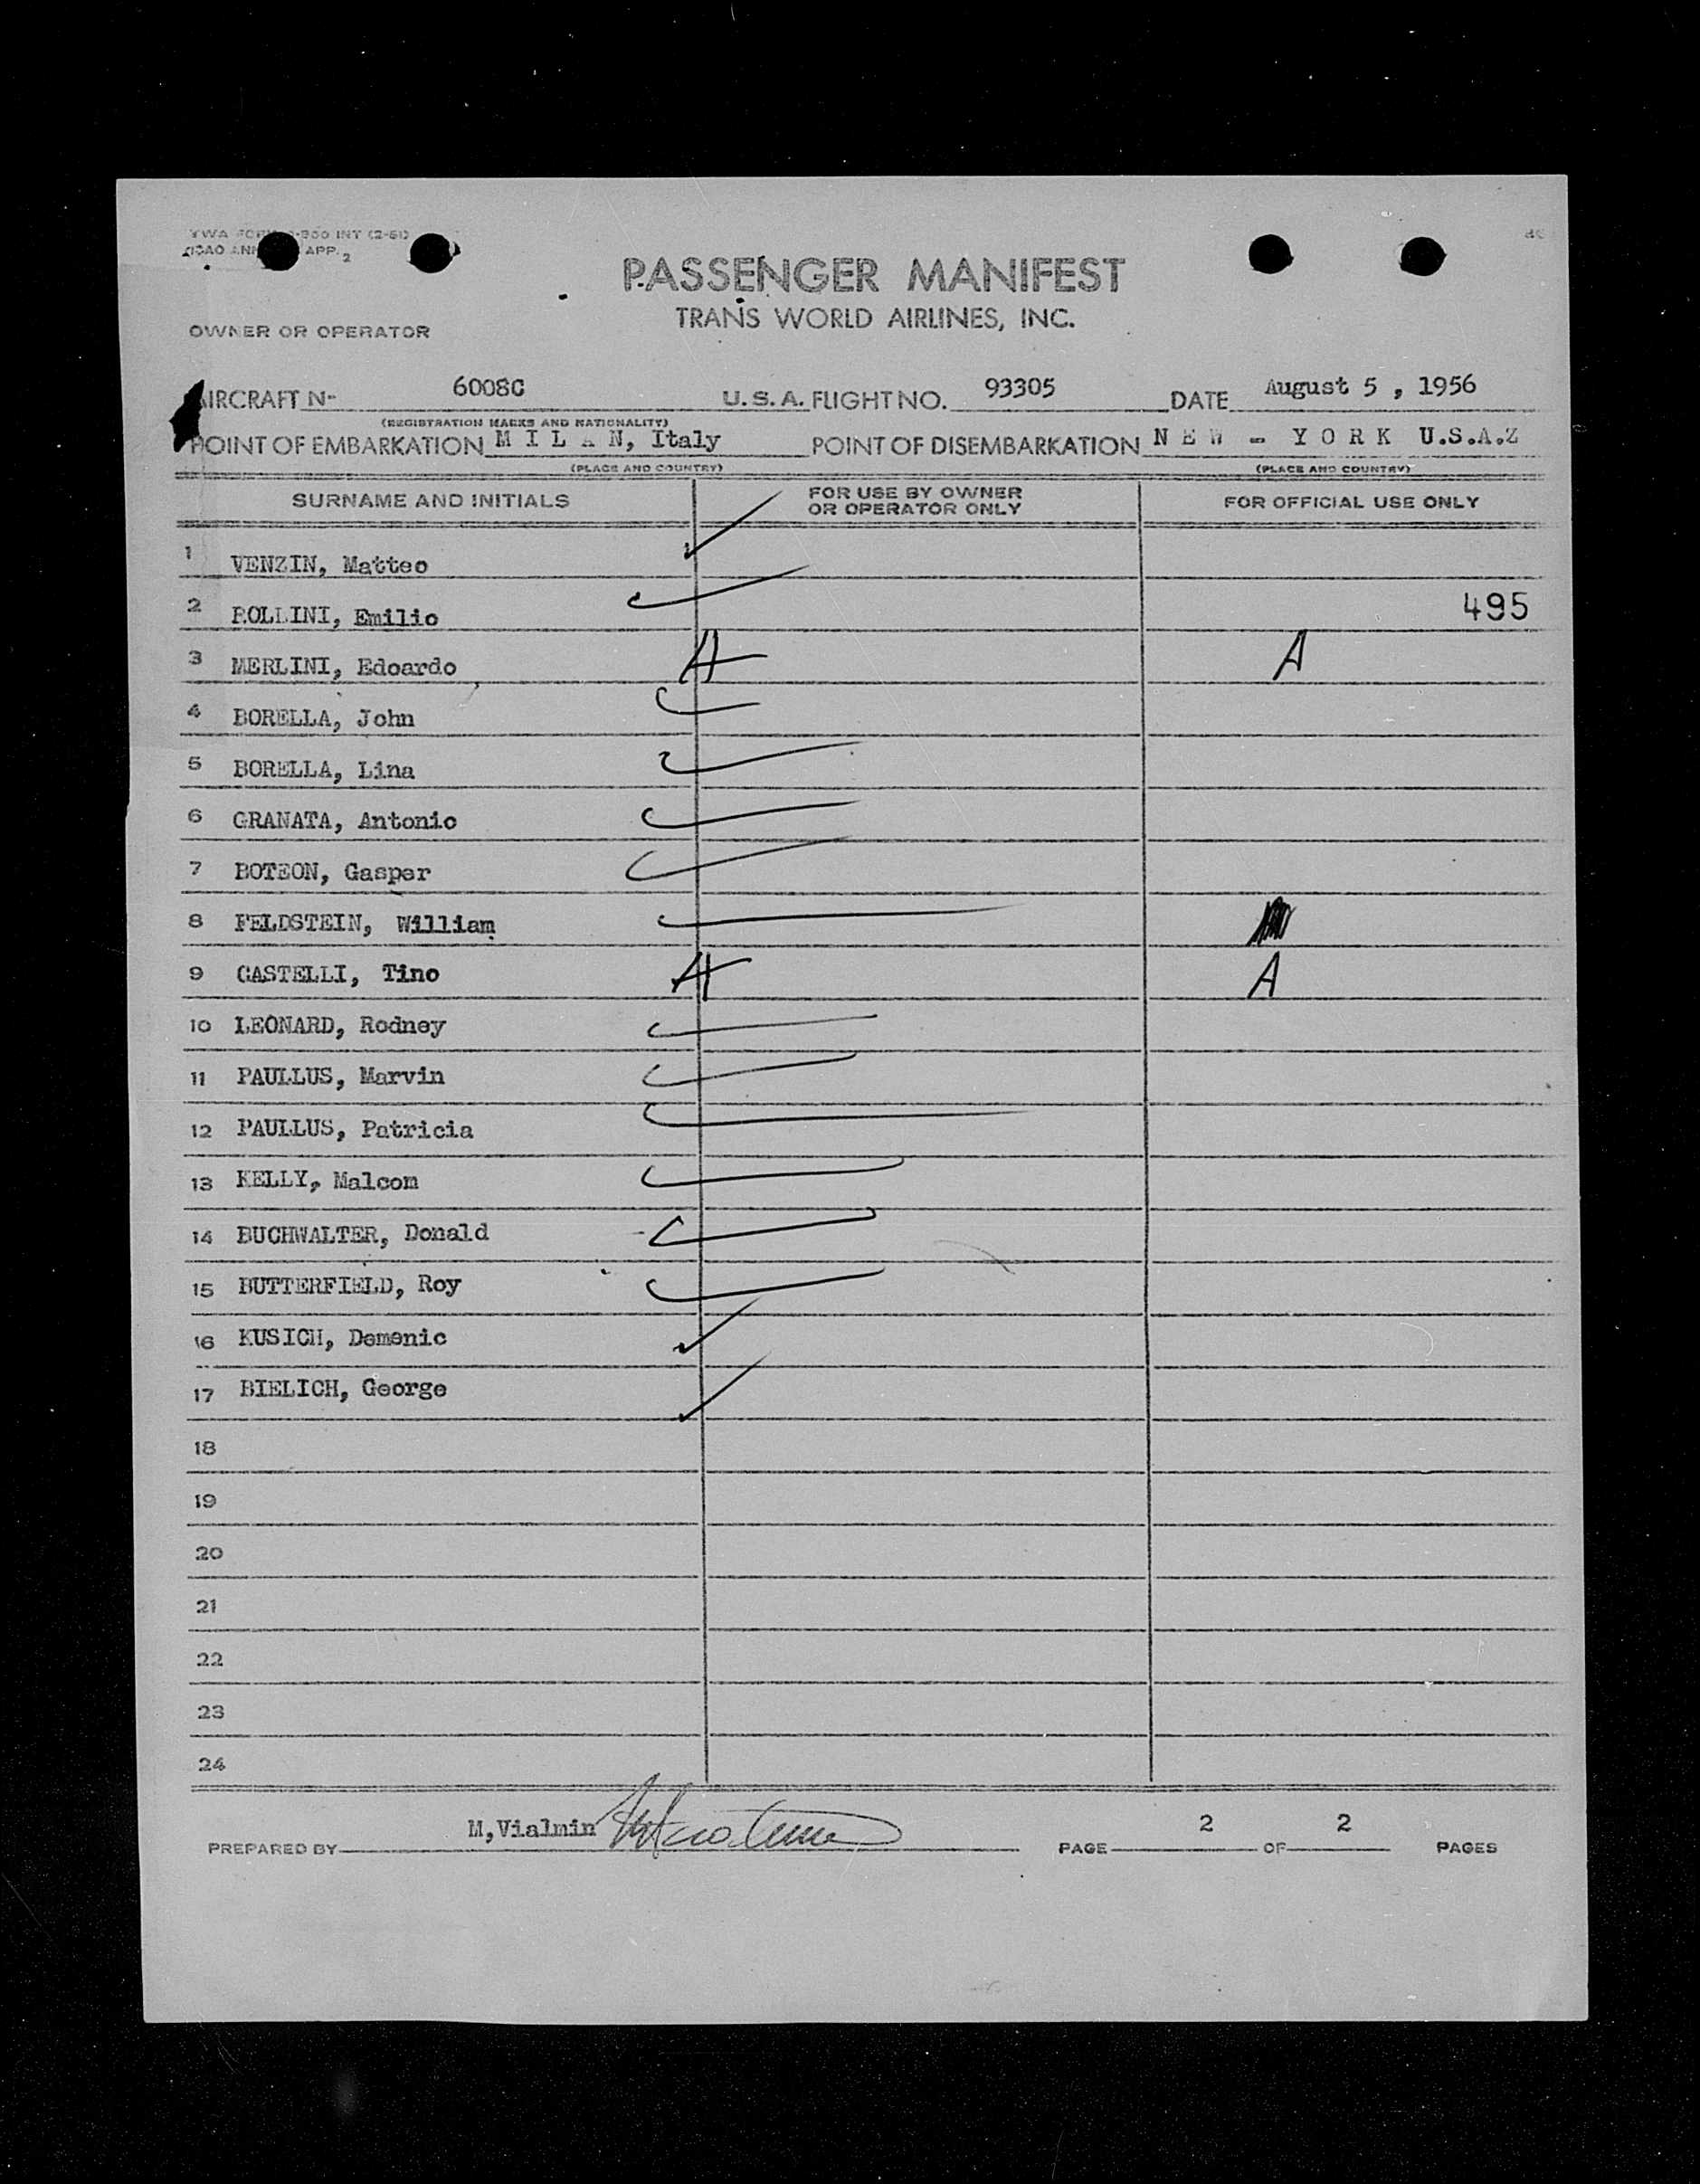 TWA FORM -300 INT (2-51)
ICAO ANN APP. 2
PASSENGER MANIFEST
TRANS WORLD AIRLINES, INC.
OWNER OR OPERATOR
AIRCRAFT N- 6008C U.S.A. FLIGHT NO. 93305 DATE August 5 , 1956
(REGISTRATION MARKS AND NATIONALITY)
POINT OF EMBARKATION M I L A N, Italy POINT OF DISEMBARKATION N E W - Y O R K U.S.A.Z
(PLACE AND COUNTRY) (PLACE AND COUNTRY)
SURNAME AND INITIALS FOR USE BY OWNER OR OPERATOR ONLY FOR OFFICIAL USE ONLY
1 VENZIN, Matteo
2 ROLLINI, Emilio 495
3 MERLINI, Edoardo A A
4 BORELLA, John
5 BORELLA, Lina
6 GRANATA, Antonio
7 BOTEON, Gasper
8 FELDSTEIN, William
9 CASTELLI, Tino A A
10 LEONARD, Rodney
11 PAULLUS, Marvin
12 PAULLUS, Patricia
13 KELLY, Malcom
14 BUCHWALTER, Donald
15 BUTTERFIELD, Roy
16 KUSICH, Domenic
17 BIELICH, George
18
19
20
21
22
23
24
PREPARED BY M,Vialmin PAGE 2 OF 2 PAGES